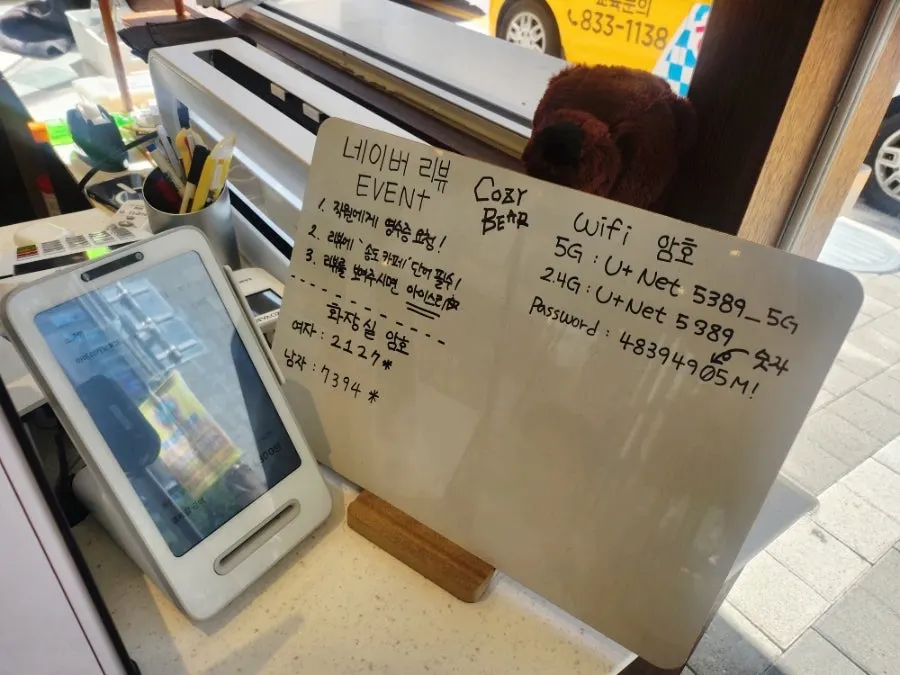 교육문의
833-1138
네이버 리뷰
EVENt
1. 직원에게 영수증 요청!
2. 리뷰에 '송도 카페' 단어 필수!
3. 리뷰를 보여주시면 아이스티
화장실 암호
여자 : 2127*
남자 : 7394 *
COZY
BEAR
Wifi 암호
5G : U+ Net 5389_5G
2.4G : U+Net 5389
Password : 48394905M!
숫자